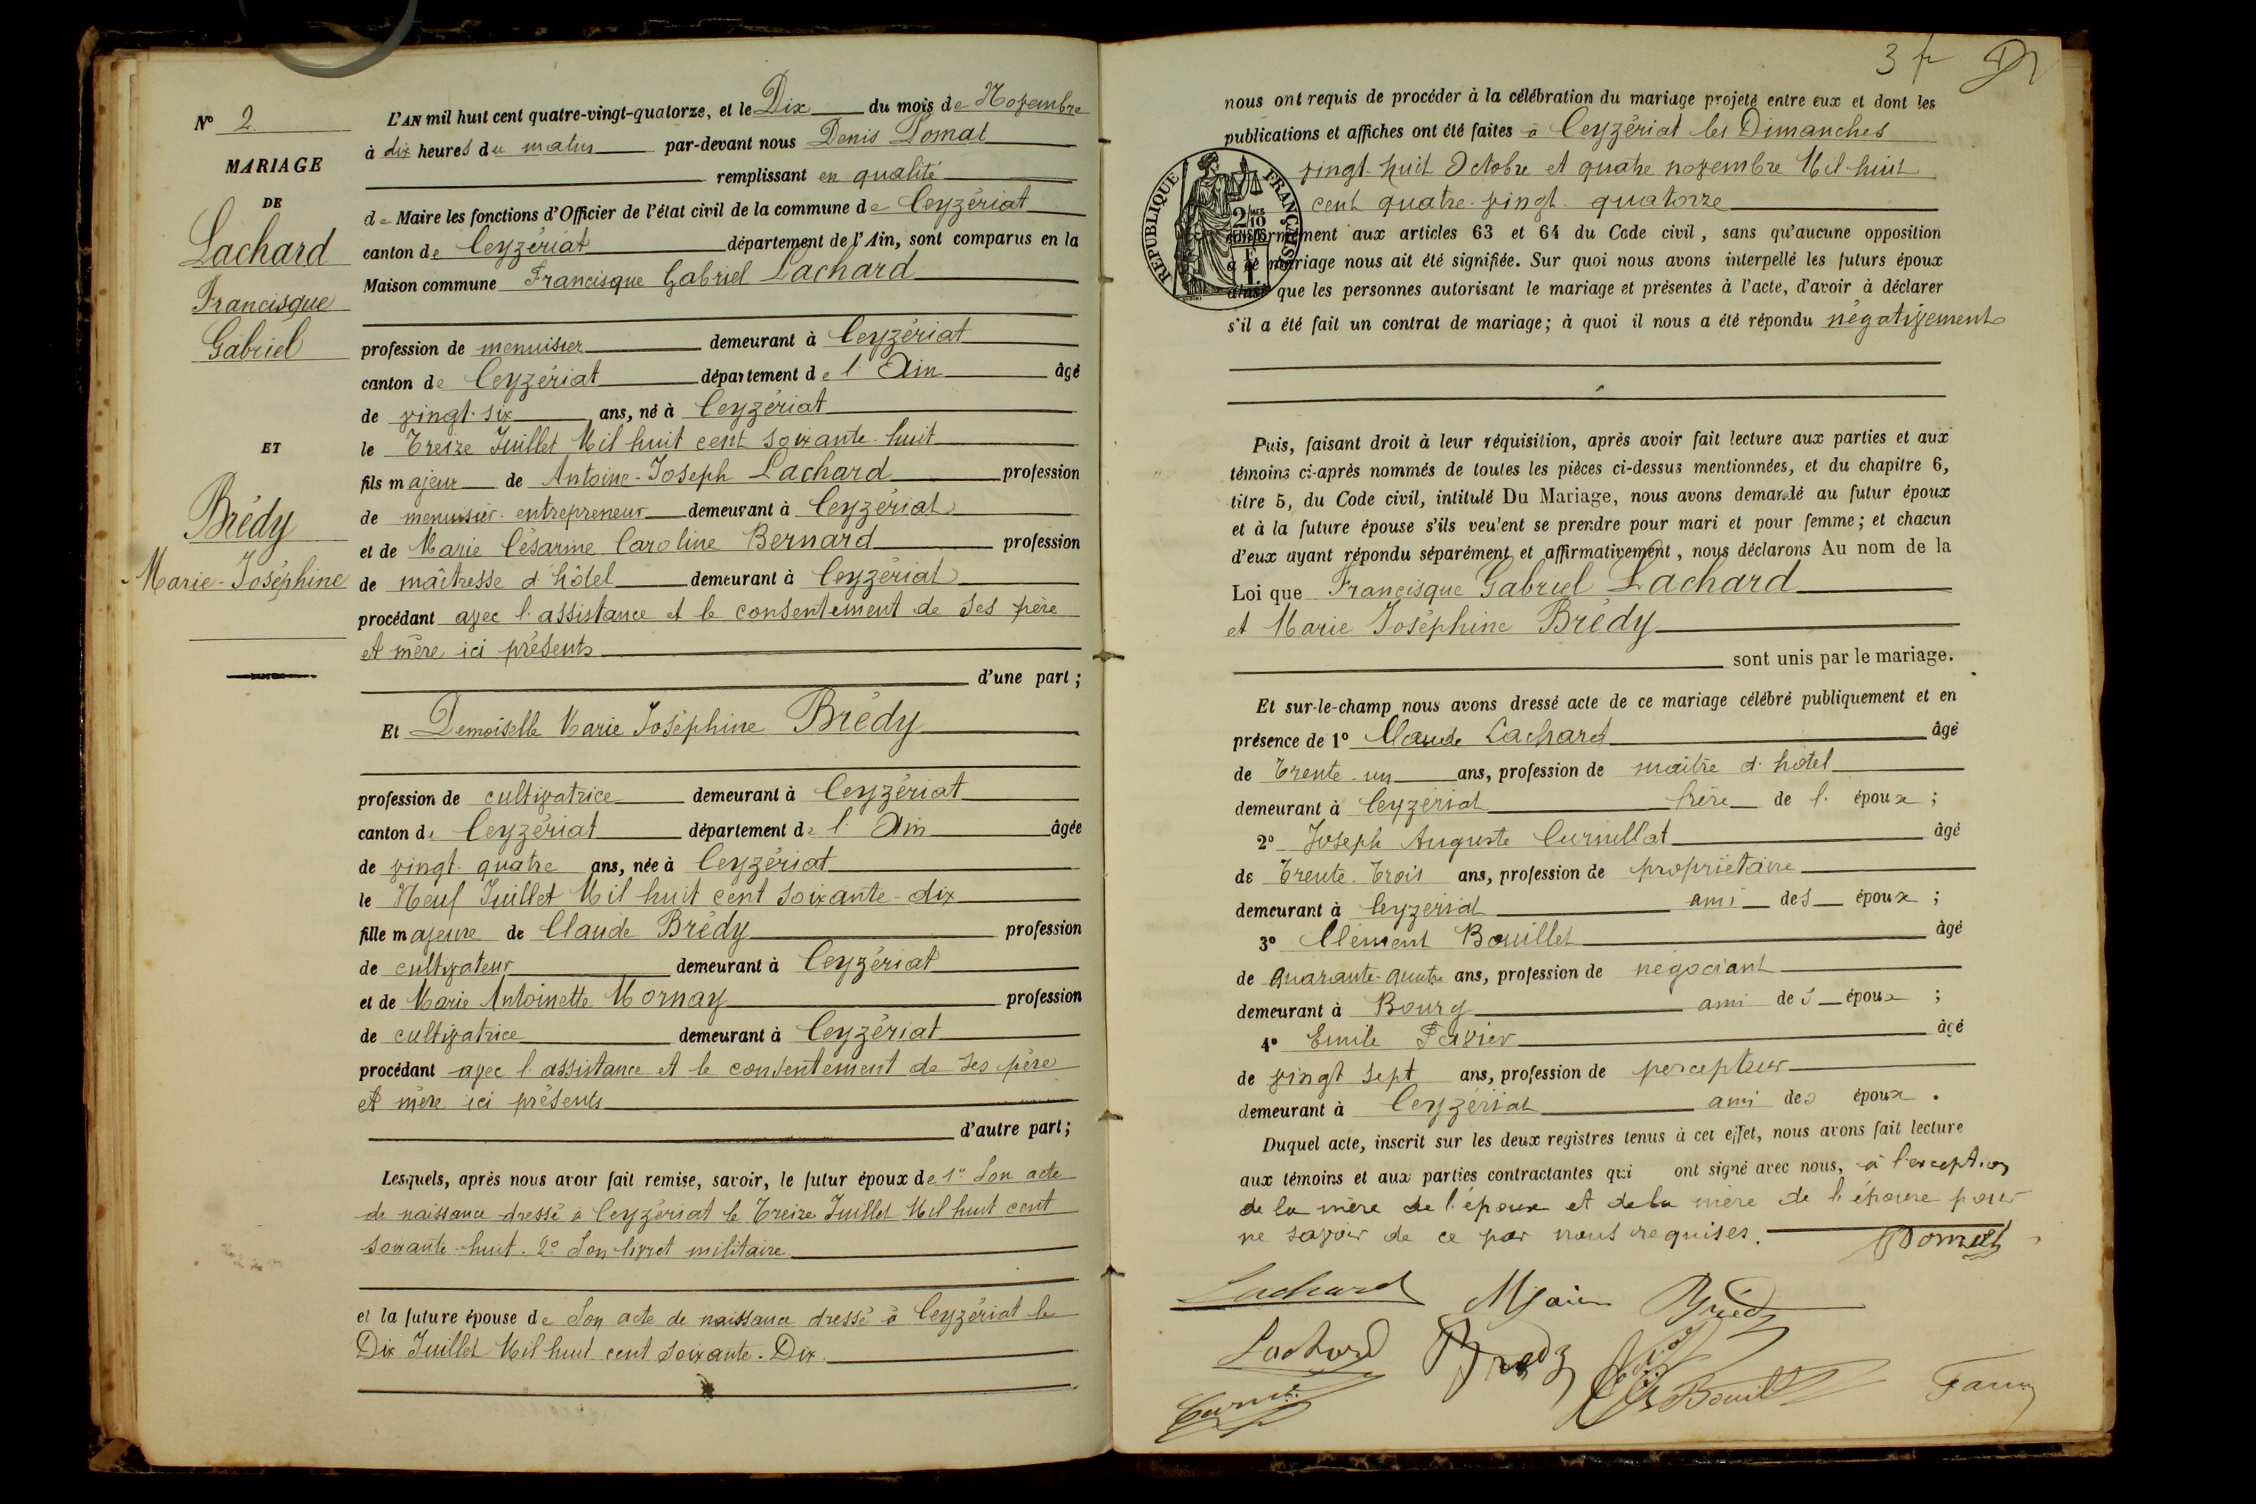 N° 2
MARIAGE
DE
Lachard
Francisque
Gabriel
ET
Brédy
Marie-Joséphine
L'AN mil huit cent quatre-vingt-quatorze, et le Dix du mois de Novembre
à dix heures du matin par-devant nous Denis Domat
remplissant en qualité
de Maire les fonctions d'Officier de l'état civil de la commune de Ceyzériat
canton de Ceyzériat département de l'Ain, sont comparus en la
Maison commune Francisque Gabriel Lachard
profession de menuisier demeurant à Ceyzériat
canton de Ceyzériat département de l'Ain âgé
de vingt-six ans, né à Ceyzériat
le Treize Juillet Mil huit cent soixante-huit
fils majeur de Antoine-Joseph Lachard profession
de menuisier-entrepreneur demeurant à Ceyzériat
et de Marie Césarine Caroline Bernard profession
de maîtresse d'hôtel demeurant à Ceyzériat
procédant avec l'assistance et le consentement de ses père
et mère ici présents
d'une part ;
Et Demoiselle Marie Joséphine Brédy
profession de cultivatrice demeurant à Ceyzériat
canton de Ceyzériat département de l'Ain âgée
de vingt-quatre ans, née à Ceyzériat
le Neuf Juillet Mil huit cent soixante-dix
fille majeure de Claude Brédy profession
de cultivateur demeurant à Ceyzériat
et de Marie Antoinette Mornay profession
de cultivatrice demeurant à Ceyzériat
procédant avec l'assistance et le consentement de ses père
et mère ici présents
d'autre part ;
Lesquels, après nous avoir fait remise, savoir, le futur époux de 1° Son acte
de naissance dressé à Ceyzériat le Treize Juillet Mil huit cent
soixante-huit. 2° Son livret militaire
et la future épouse de Son acte de naissance dressé à Ceyzériat le
Dix Juillet Mil huit cent soixante-Dix.
3 fr
nous ont requis de procéder à la célébration du mariage projeté entre eux et dont les
publications et affiches ont été faites à Ceyzériat les Dimanches
vingt-huit Octobre et quatre novembre Mil-huit
cent quatre-vingt-quatorze
RÉPUBLIQUE FRANÇAISE
2/10
conformément aux articles 63 et 64 du Code civil, sans qu'aucune opposition
à ce mariage nous ait été signifiée. Sur quoi nous avons interpellé les futurs époux
ainsi que les personnes autorisant le mariage et présentes à l'acte, d'avoir à déclarer
s'il a été fait un contrat de mariage ; à quoi il nous a été répondu négativement
Puis, faisant droit à leur réquisition, après avoir fait lecture aux parties et aux
témoins ci-après nommés de toutes les pièces ci-dessus mentionnées, et du chapitre 6,
titre 5, du Code civil, intitulé Du Mariage, nous avons demandé au futur époux
et à la future épouse s'ils veulent se prendre pour mari et pour femme ; et chacun
d'eux ayant répondu séparément et affirmativement, nous déclarons Au nom de la
Loi que Francisque Gabriel Lachard
et Marie Joséphine Brédy
sont unis par le mariage.
Et sur-le-champ nous avons dressé acte de ce mariage célébré publiquement et en
présence de 1° Claude Lachard âgé
de Trente-un ans, profession de maître d'hôtel
demeurant à Ceyzériat frère de l'époux ;
2° Joseph Auguste Curnillat âgé
de Trente-Trois ans, profession de propriétaire
demeurant à Ceyzériat ami des époux ;
3° Clément Bouillet âgé
de Quarante-quatre ans, profession de négociant
demeurant à Bourg ami des époux ;
4° Emile Favier âgé
de vingt sept ans, profession de percepteur
demeurant à Ceyzériat ami des époux.
Duquel acte, inscrit sur les deux registres tenus à cet effet, nous avons fait lecture
aux témoins et aux parties contractantes qui ont signé avec nous, à l'exception
de la mère de l'époux et de la mère de l'épouse pour
ne savoir de ce par nous requises.
Domat
Lachard Brédy
Lachard Brédy
Bouillet